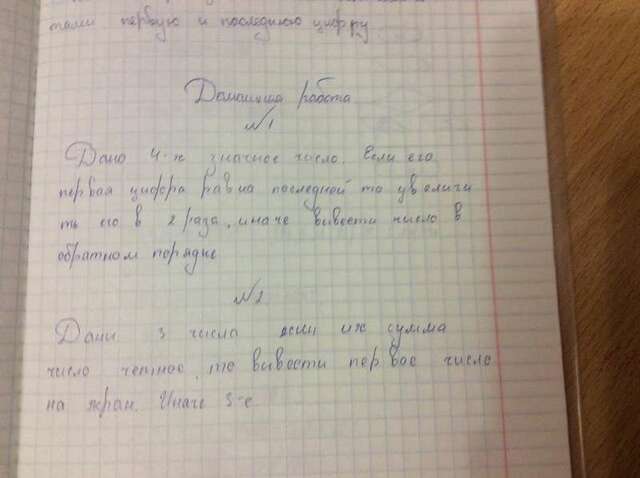 тами первую и последнюю цифру.
Домашняя работа
№1
Дано 4-х значное число. Если его
первая цифра равна последней то увеличи
ть его в 2 раза, иначе вивести число в
обратном порядке
№2
Дани 3 числа если их сумма
число четное, то вивести первое число
на экран. Иначе 3-е.